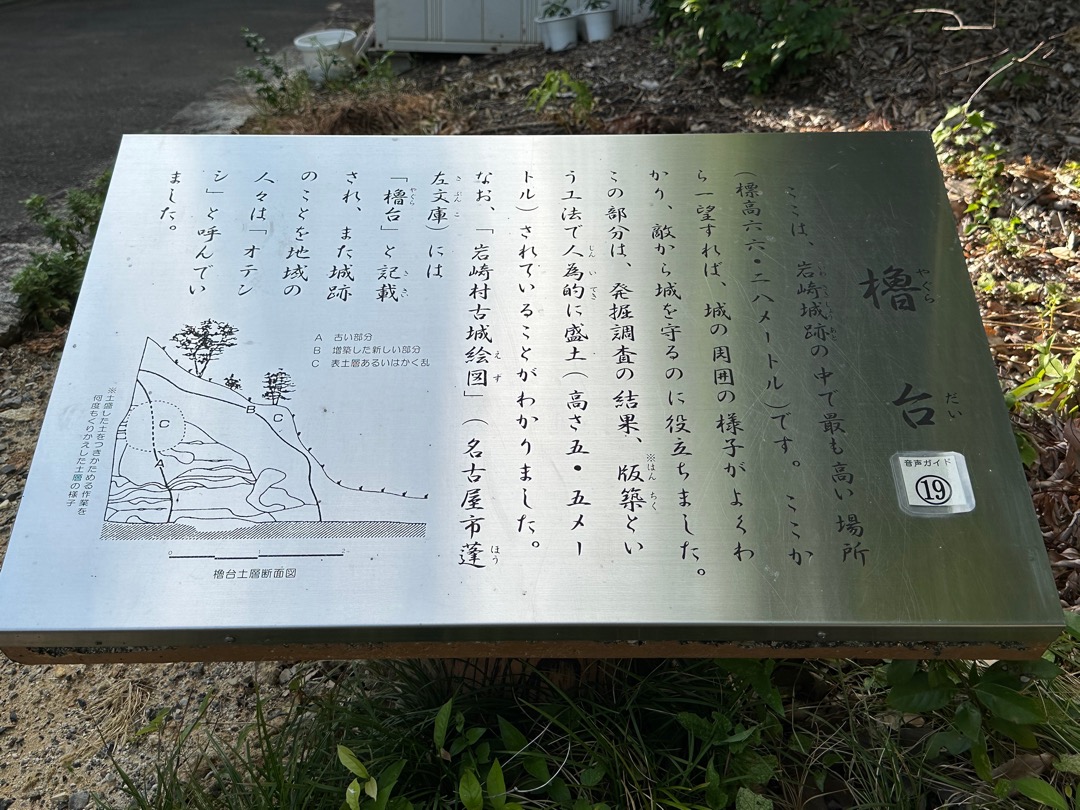 櫓台
やぐら
だい
音声ガイド
⑲
ここは、岩崎城跡の中で最も高い場所
(標高六六・二八メートル)です。ここか
ら一望すれば、城の周囲の様子がよくわ
かり、敵から城を守るのに役立ちました。
この部分は、発掘調査の結果、版築とい
※はんちく
う工法で人為的に盛土(高さ五・五メー
じんいてき
トル)されていることがわかりました。
なお、「岩崎村古城絵図」(名古屋市蓬
えず
ほう
左文庫)には
さぶんこ
「櫓台」と記載
やぐら
きさい
され、また城跡
のことを地域の
人々は「オテン
シ」と呼んでい
ました。
A 古い部分
B 増築した新しい部分
C 表土層あるいはかく乱
B
C
C
A
※土盛した土をつきかためる作業を
何度もくりかえした土層の様子
0
2
櫓台土層断面図